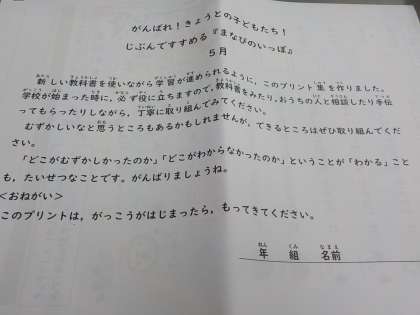 がんばれ！きょうとの子どもたち！
じぶんですすめる『まなびのいっぽ』
５月
新しい教科書を使いながら学習が進められるように，このプリント集を作りました。
学校が始まった時に，必ず役に立ちますので，教科書をみたり，おうちの人と相談したり手伝
ってもらったりしながら，丁寧に取り組んでみてください。
むずかしいなと思うところもあるかもしれませんが，できるところはぜひ取り組んでくだ
さい。
「どこがむずかしかったのか」「どこがわからなかったのか」ということが「わかる」こと
も，たいせつなことです。がんばりましょうね。
＜おねがい＞
このプリントは，がっこうがはじまったら，もってきてください。
ねん くみ なまえ
年 組 名前